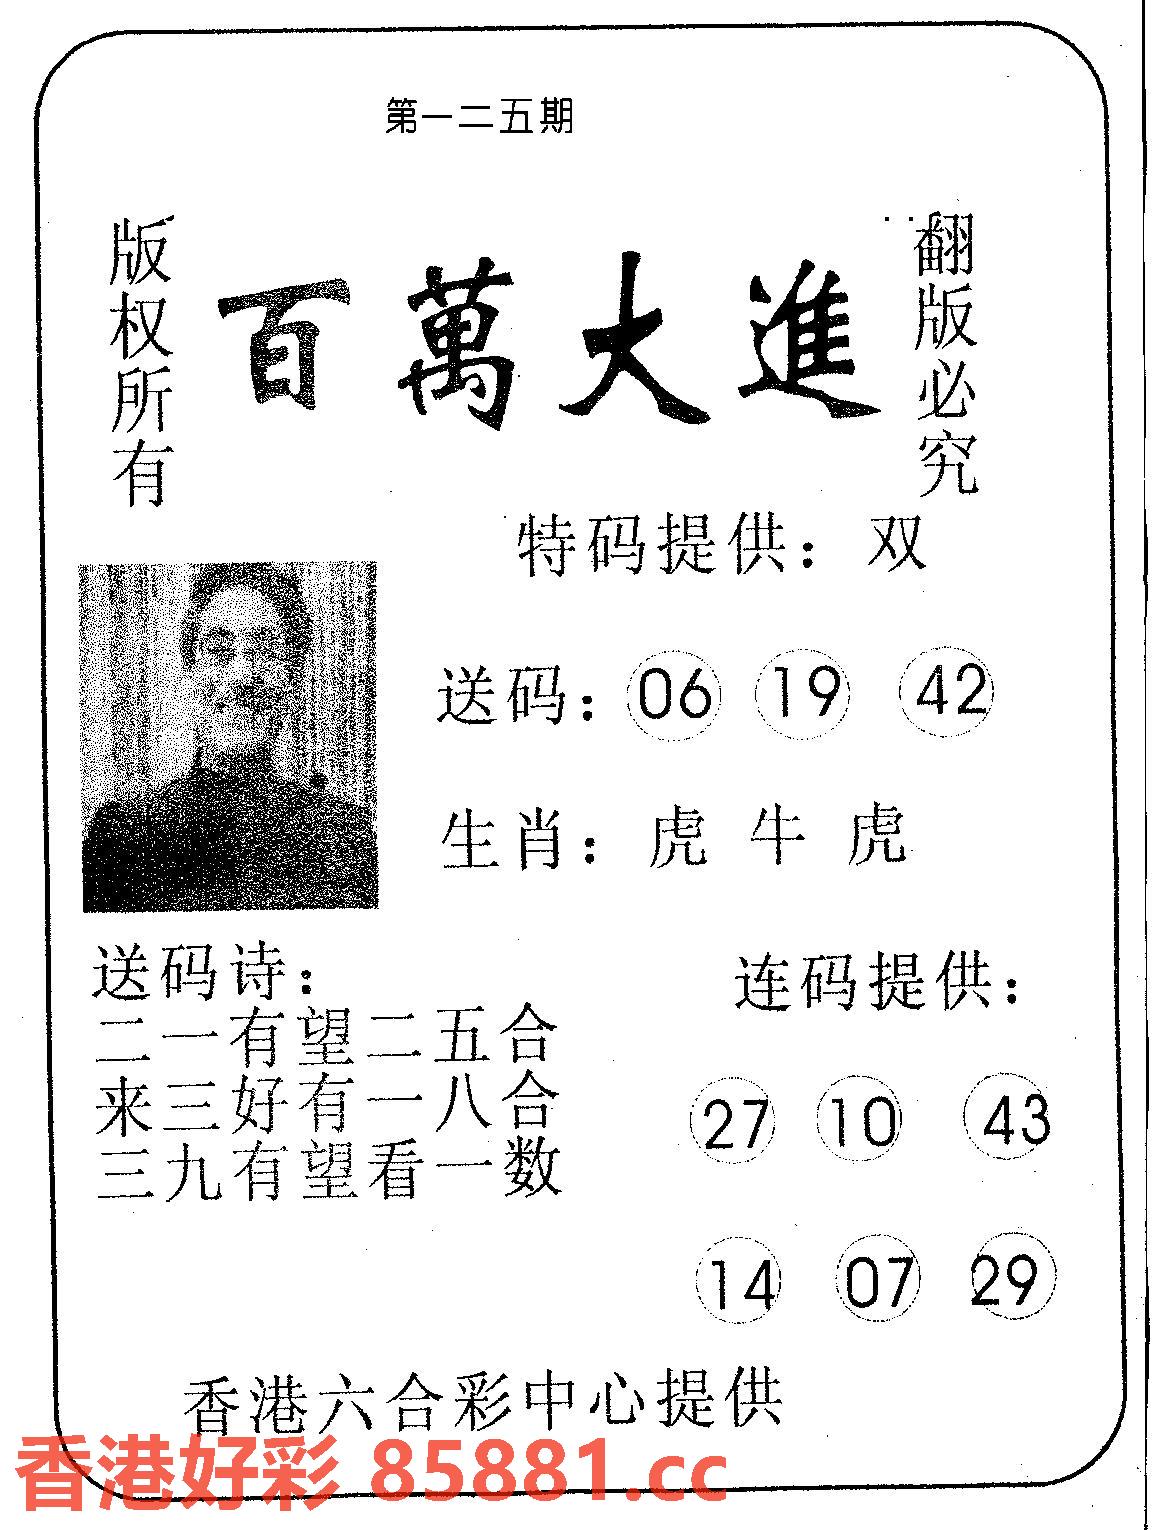 第一二五期
版权所有
百萬大進
翻版必究
特码提供：双
送码：06 19 42
生肖：虎 牛 虎
送码诗：
二一有望二五合
来三好有一八合
三九有望看一数
连码提供：
27 10 43
14 07 29
香港六合彩中心提供
香港好彩 85881.cc